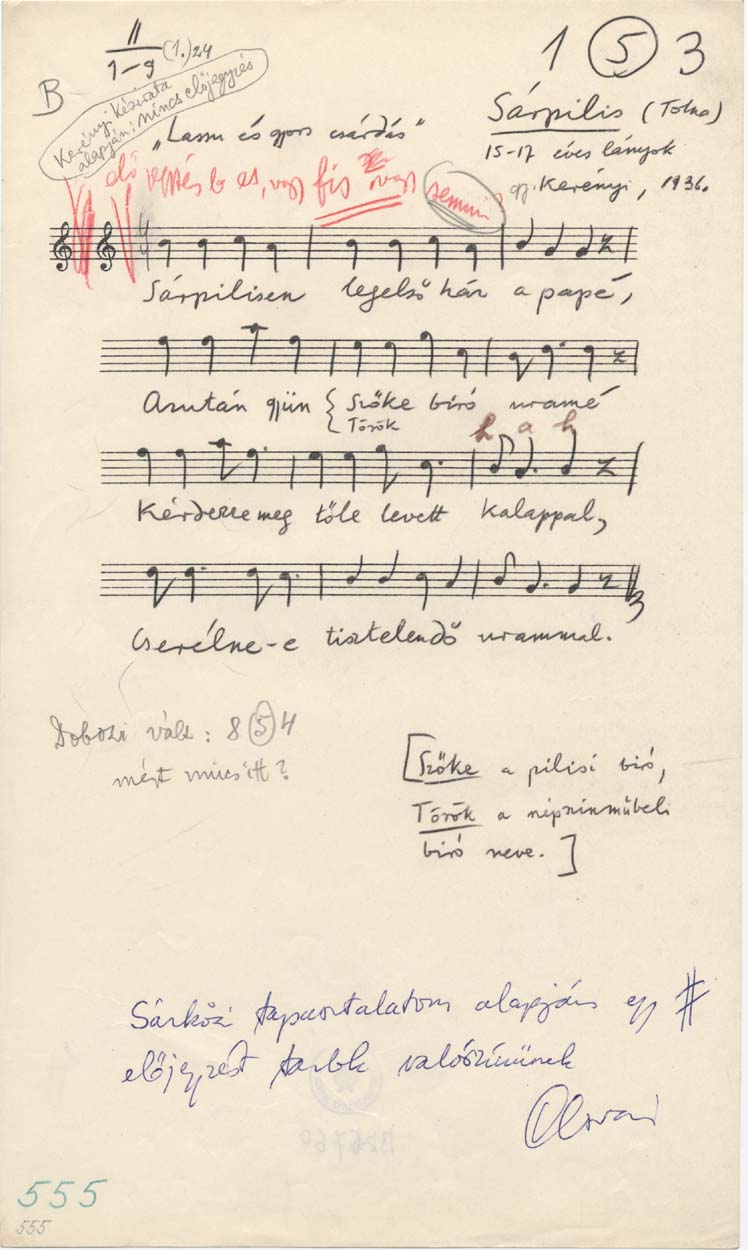 II
1-9 (1.) 24
1 5 3
B
Kerényi kézirata
alapján: nincs előjegyzés
Sárpilis (Tolna)
15-17 éves lányok
gy. Kerényi, 1936.
"Lassu és gyors csárdás"
előjegyzés b es, vagy fis vagy semmi?
Sárpilisen legelső ház a papé,
Azután gyün { Szőke biró uramé
Török
h a h
Kérdezze meg tőle levett kalappal,
Cserélne-e tisztelendő urammal.
3
Dobozi vált: 8 5 4
mért nincs itt?
[Szőke a pilisi biró,
Török a népszinműbeli
biró neve.]
Sárközi tapasztalatom alapján egy #
előjegyzést tartok valószinünek
Olsvai
555
555